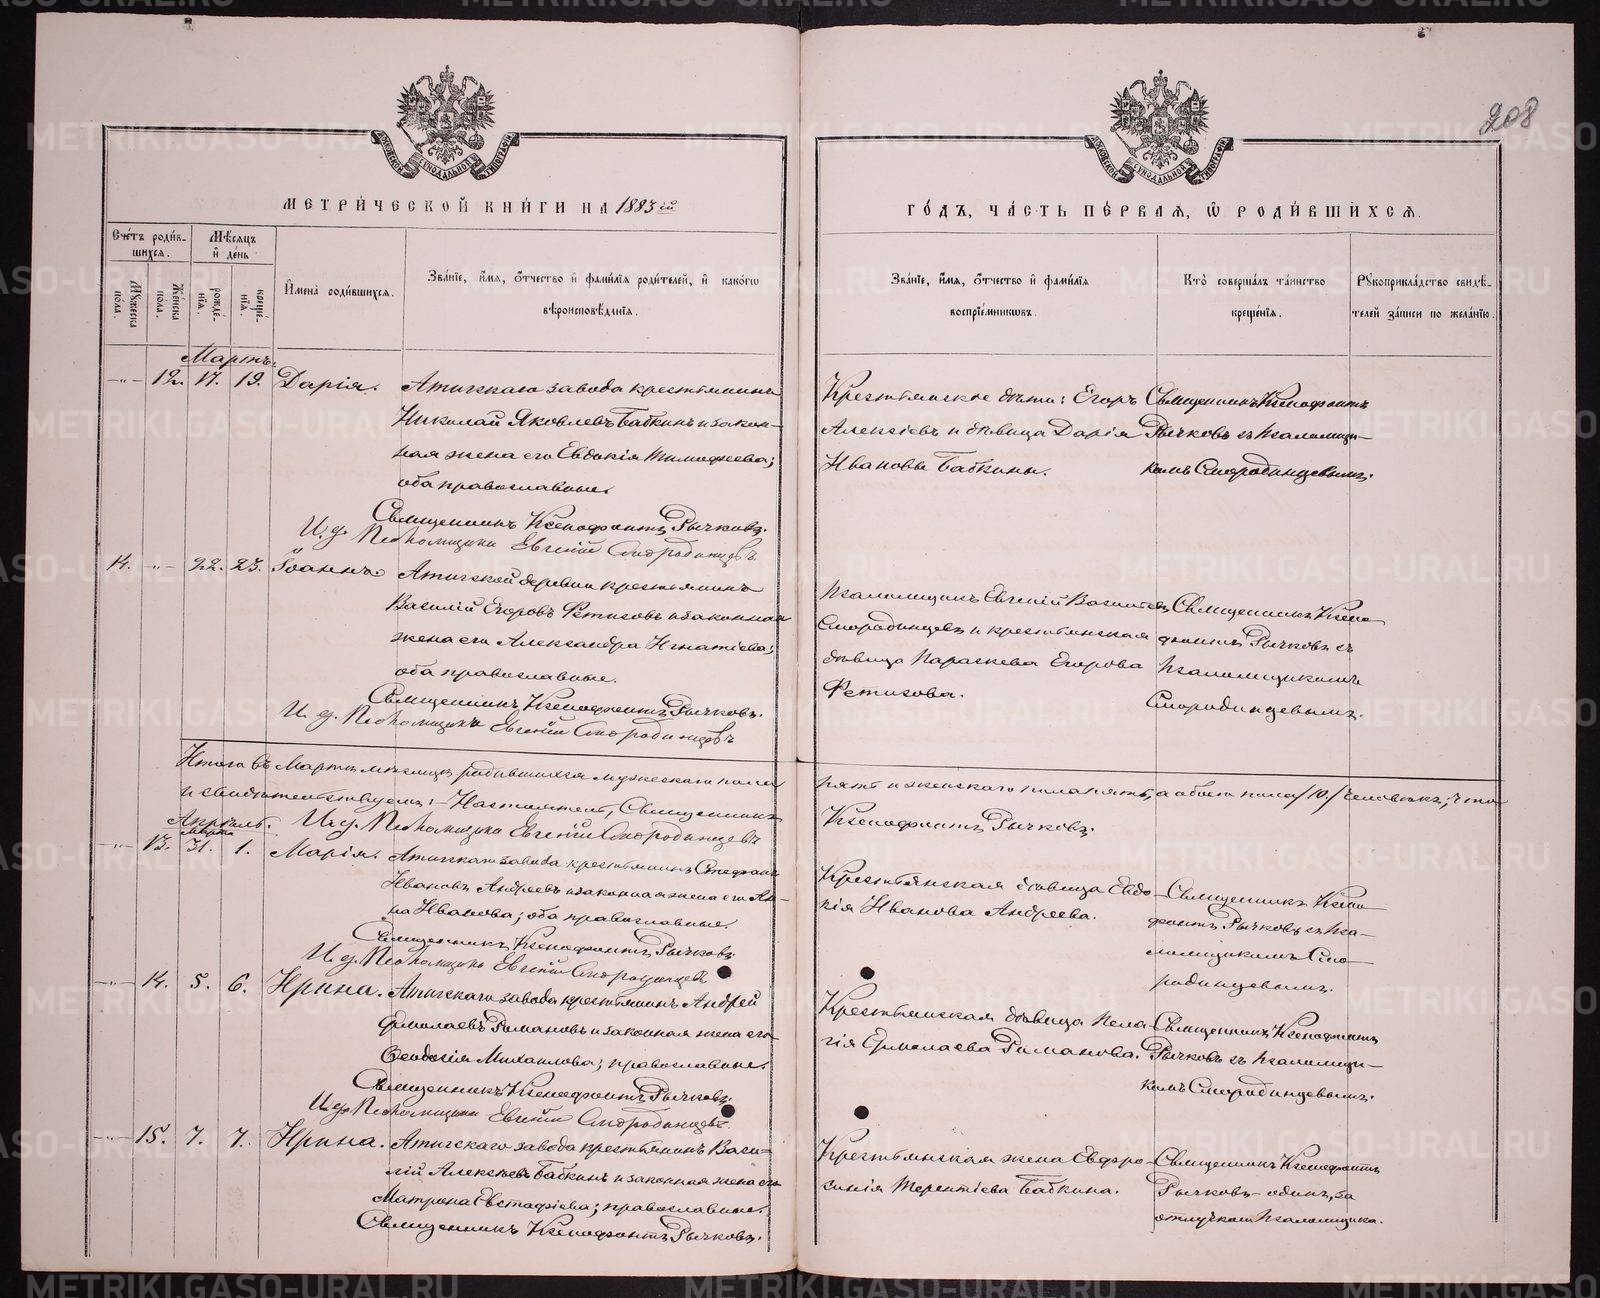 208
МЕТРИЧЕСКОЙ КНИГИ НА 1883 ій
ГОДЪ, ЧАСТЬ ПЕРВАЯ, Ѿ РОДИВШИХСЯ.
Счетъ родив-
шихся.
Мужеска
пола.
Женска
пола.
Мѣсяцъ
и день
рожде-
нія.
креще-
нія.
Имена родившихся.
Званіе, имя, отчество и фамилія родителей, и какогѡ
вѣроисповѣданія.
Званіе, имя, отчество и фамилія
воспріемниковъ.
Кто совершалъ таинство
крещенія.
Рукоприкладство свидѣ-
телей записи по желанію.
Мартъ.
-"- 12. 17. 19. Дарія.
Атигскаго завода крестьянинъ
Николай Яковлевъ Бабкинъ и закон-
ная жена его Евдокія Тимофеева;
оба православные.
Священникъ Ксенофонтъ Рычковъ.
И. д. Псаломщика Евгеній Смородинцевъ.
Крестьянскіе дѣти: Егоръ
Алексіевъ и дѣвица Дарія
Ивановы Бабкины.
Священникъ Ксенофонтъ
Рычковъ съ псаломщи-
комъ Смородинцевымъ.
14. -"- 22. 23. Іоаннъ.
Атигской деревни крестьянинъ
Василій Егоровъ Фетисовъ и законная
жена его Александра Игнатіева;
оба православные.
Священникъ Ксенофонтъ Рычковъ.
И. д. Псаломщика Евгеній Смородинцевъ
Псаломщикъ Евгеній Васильевъ
Смородинцевъ и крестьянская
дѣвица Параскева Егорова
Фетисова.
Священникъ Ксено-
фонтъ Рычковъ съ
псаломщикомъ
Смородинцевымъ.
Итого въ Мартѣ мѣсяцѣ родившихся мужескаго пола
пять и женскаго пола пять, а обоего пола /10./ человѣкъ; что
и свидѣтельствуемъ: - Настоятель, Священникъ
Ксенофонтъ Рычковъ.
И. д. Псаломщика Евгеній Смородинцевъ
Апрѣль.
Марта
-"- 13. 31. 1. Марія.
Атигскаго завода крестьянинъ Стефанъ
Ивановъ Андреевъ и законная жена его Ан-
на Иванова; оба православные.
Священникъ Ксенофонтъ Рычковъ.
И. д. Псаломщика Евгеній Смородинцевъ
Крестьянская дѣвица Евдо-
кія Иванова Андреева.
Священникъ Ксено-
фонтъ Рычковъ съ пса-
ломщикомъ Смо-
родинцевымъ.
-"- 14. 5. 6. Ирина.
Атигскаго завода крестьянинъ Андрей
Ермолаевъ Романовъ и законная жена его
Ѳеодосія Михаилова; православные.
Священникъ Ксенофонтъ Рычковъ.
И. д. Псаломщика Евгеній Смородинцевъ.
Крестьянская дѣвица Пела-
гія Ермолаева Романова.
Священникъ Ксенофонтъ
Рычковъ съ псаломщи-
комъ Смородинцевымъ.
-"- 15. 7. 7. Ирина.
Атигскаго завода крестьянинъ Васи-
лій Алексѣевъ Бабкинъ и законная жена его
Матрона Евстафіева; православные.
Священникъ Ксенофонтъ Рычковъ.
Крестьянская жена Евфро-
синія Терентіева Бабкина.
Священникъ Ксенофонтъ
Рычковъ - одинъ, за
отлучкою псаломщика.